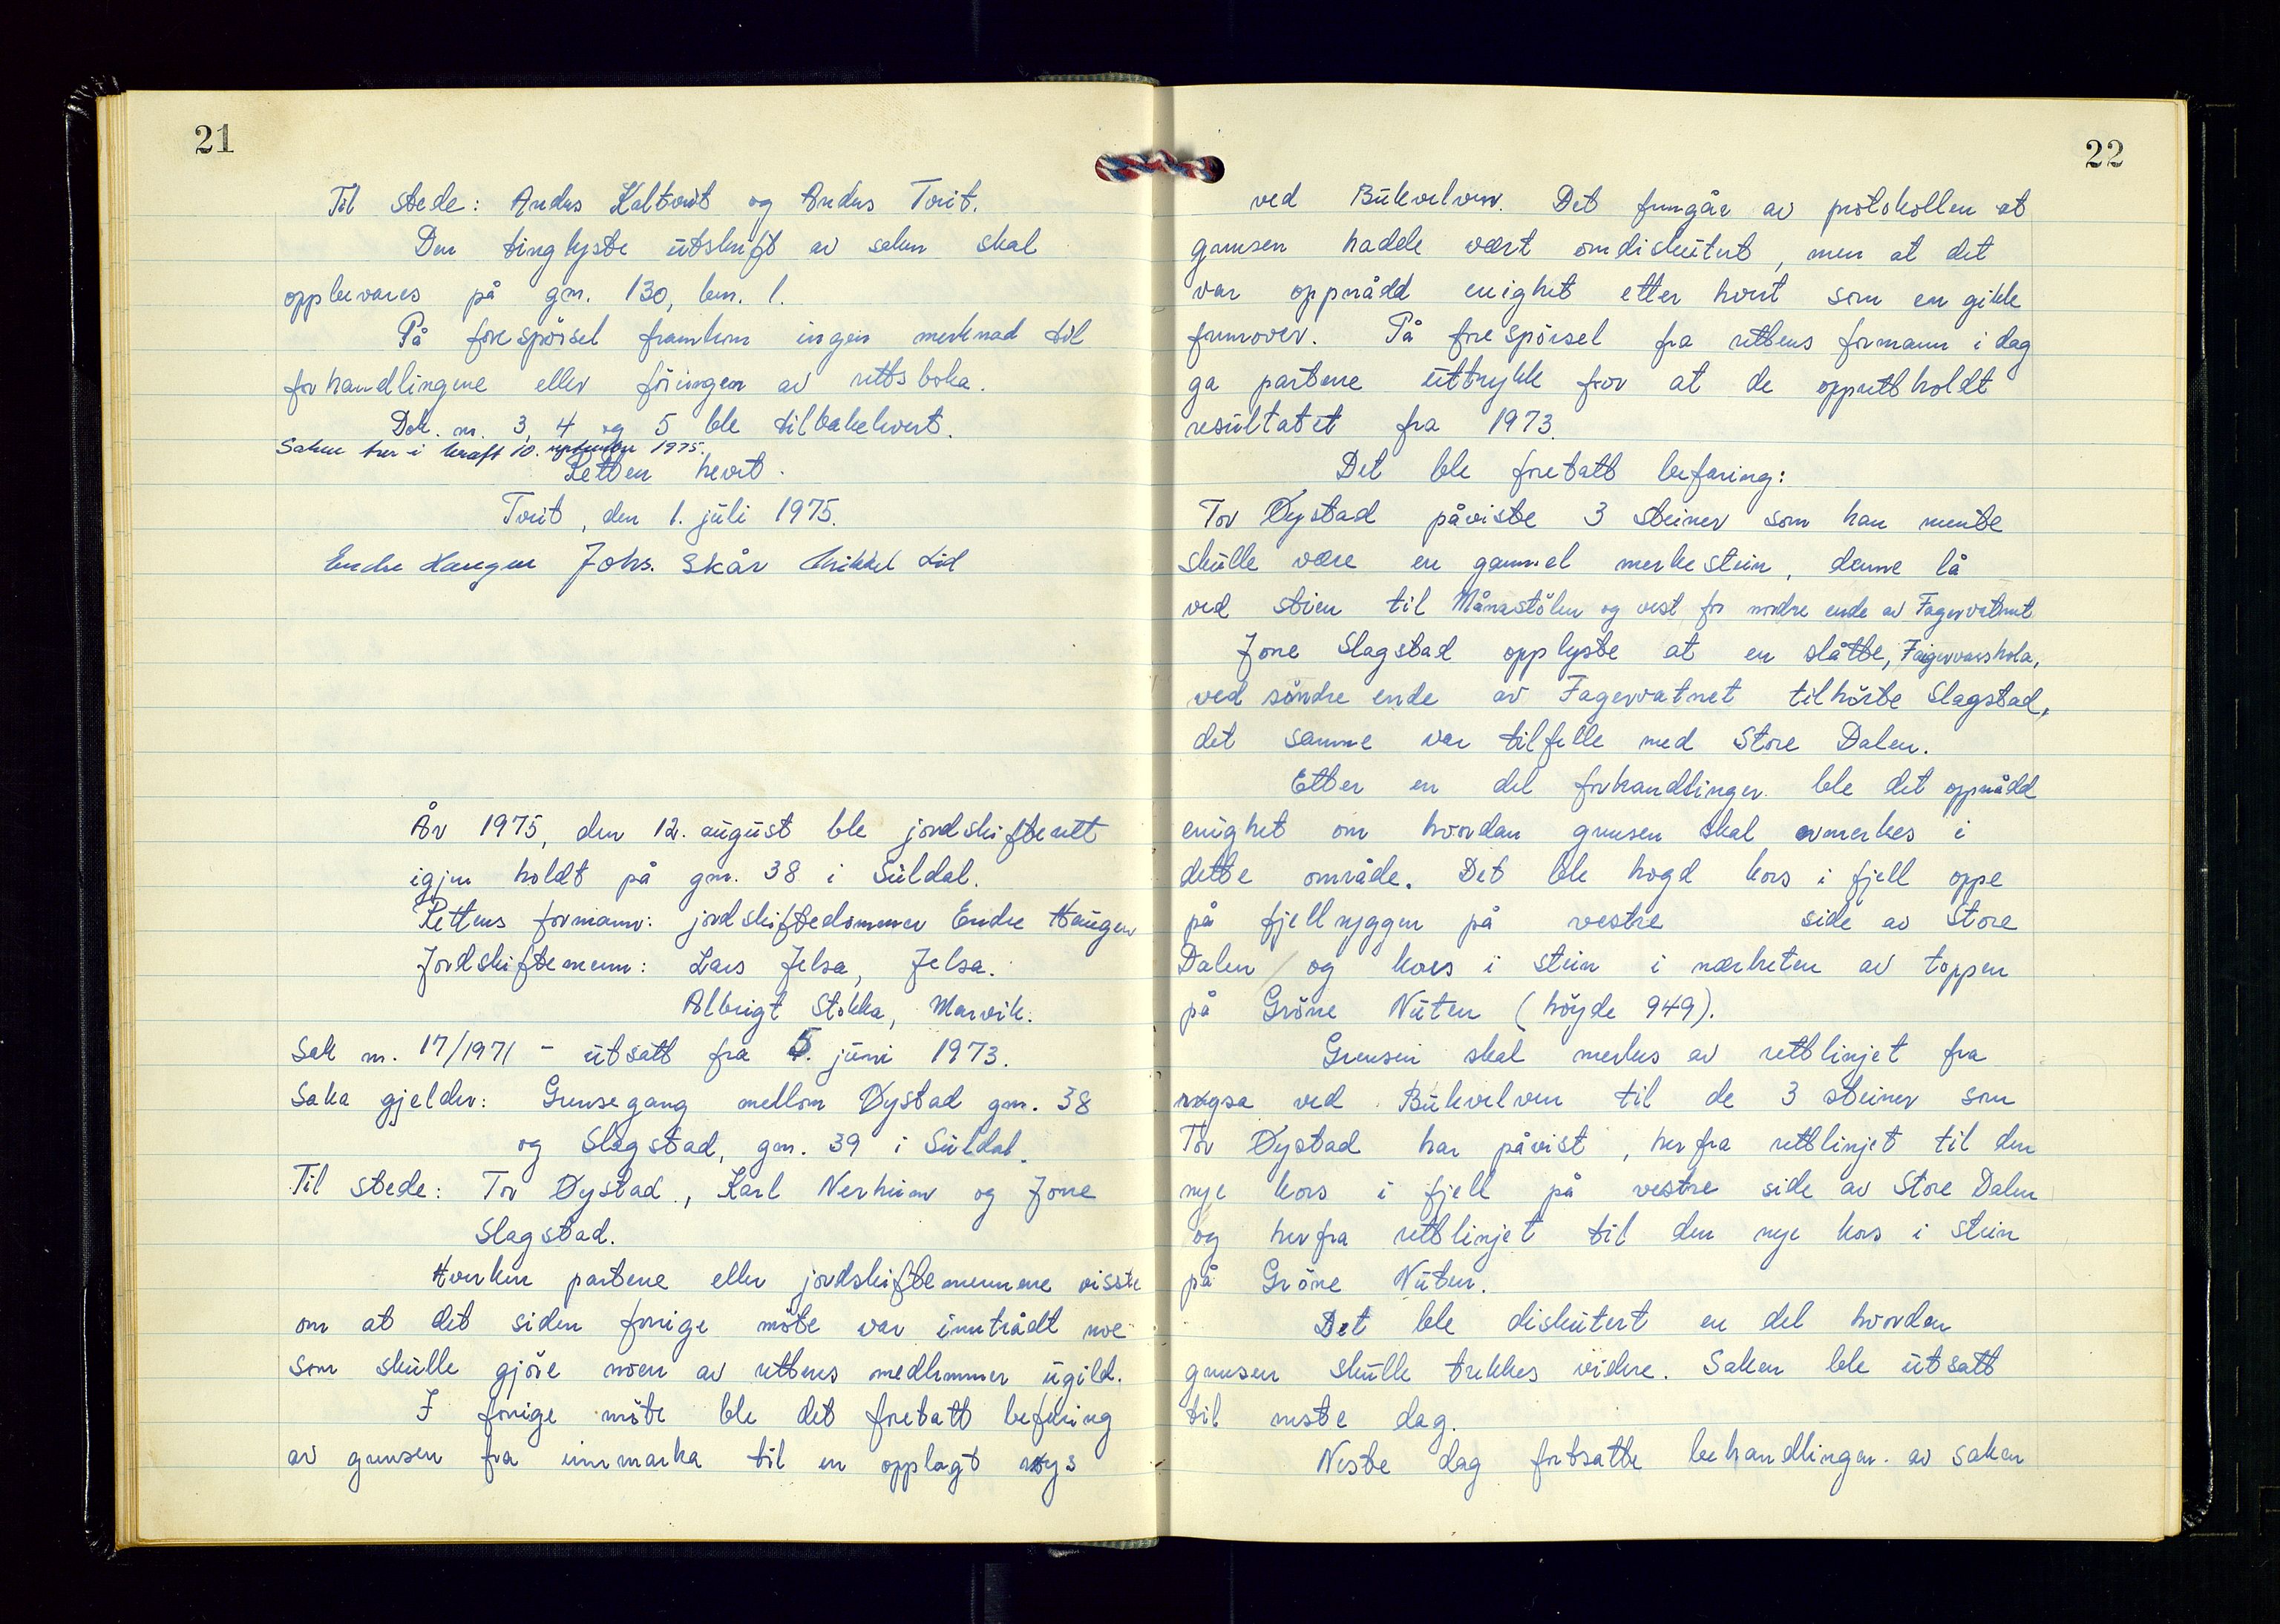 21
Til stede: Anders Kaltveit og Anders Tveit.
Den tinglyste utskrift av saken skal
oppbevares på gnr. 130, bnr. 1.
På forespørsel framkom ingen merknad til
forhandlingene eller føringen av rettsboka.
Dok. nr. 3, 4 og 5 ble tilbakelevert.
Saken trer i kraft 10. september 1975.
Retten hevet.
Tveit, den 1. juli 1975.
Endre Haugen Johs. Skår Mikkel Lid
År 1975, den 12. august ble jordskifterett
igjen holdt på gnr. 38 i Suldal.
Rettens formann: jordskiftedommer Endre Haugen
Jordskiftemenn: Lars Jelsa, Jelsa.
Albrigt Stokka, Marvik.
Sak nr. 17/1971 - utsatt fra 5. juni 1973.
Saka gjelder: Grensegang mellom Øystad gnr. 38
og Slagstad, gnr. 39 i Suldal.
Til stede: Tor Øystad, Karl Nerheim og Jone
Slagstad.
Hverken partene eller jordskiftemennene visste
om at det siden forrige møte var inntrådt noe
som skulle gjøre noen av rettens medlemmer ugild.
I forrige møte ble det foretatt befaring
av grensen fra innmarka til en opplagt røys
22
ved Bukkelven. Det fremgår av protokollen at
grensen hadde vært omdiskutert, men at det
var oppnådd enighet etter hvert som en gikk
fremover. På forespørsel fra rettens formann i dag
ga partene uttrykk for at de opprettholdt
resultatet fra 1973.
Det ble foretatt befaring:
Tor Øystad påviste 3 steiner som han mente
skulle være en gammel merkestein, denne lå
ved stien til Månastølen og vest for nordre ende av Fagervatnet
Jone Slagstad opplyste at en slåtte, Fagervasshola,
ved søndre ende av Fagervatnet tilhørte Slagstad,
det samme var tilfelle med Store Dalen.
Etter en del forhandlinger ble det oppnådd
enighet om hvordan grensen skal avmerkes i
dette område. Det ble hogd kors i fjell oppe
på fjellryggen på vestre side av Store
Dalen og kors i stein i nærheten av toppen
på Grøne Nuten (høyde 949).
Grensen skal merkes av rettlinjet fra
røysa ved Bukkelven til de 3 steiner som
Tor Øystad har påvist, herfra rettlinjet til den
nye kors i fjell på vestre side av Store Dalen
og herfra rettlinjet til den nye kors i stein
på Grøne Nuten.
Det ble diskutert en del hvordan
grensen skulle trekkes videre. Saken ble utsatt
til neste dag.
Neste dag fortsatte behandlingen av saken